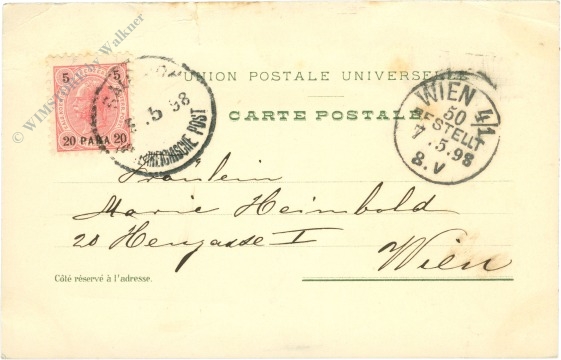 © WIMStory by Walkner
5 5
20 PARA 20
5 98
REICHISCHE POST
UNION POSTALE UNIVERSELLE
CARTE POSTALE
WIEN 4/1
50
BESTELLT
7.5.98
8.V
Fräulein
Marie Heimbold
20 Heugasse I
Wien
Côté réservé à l'adresse.